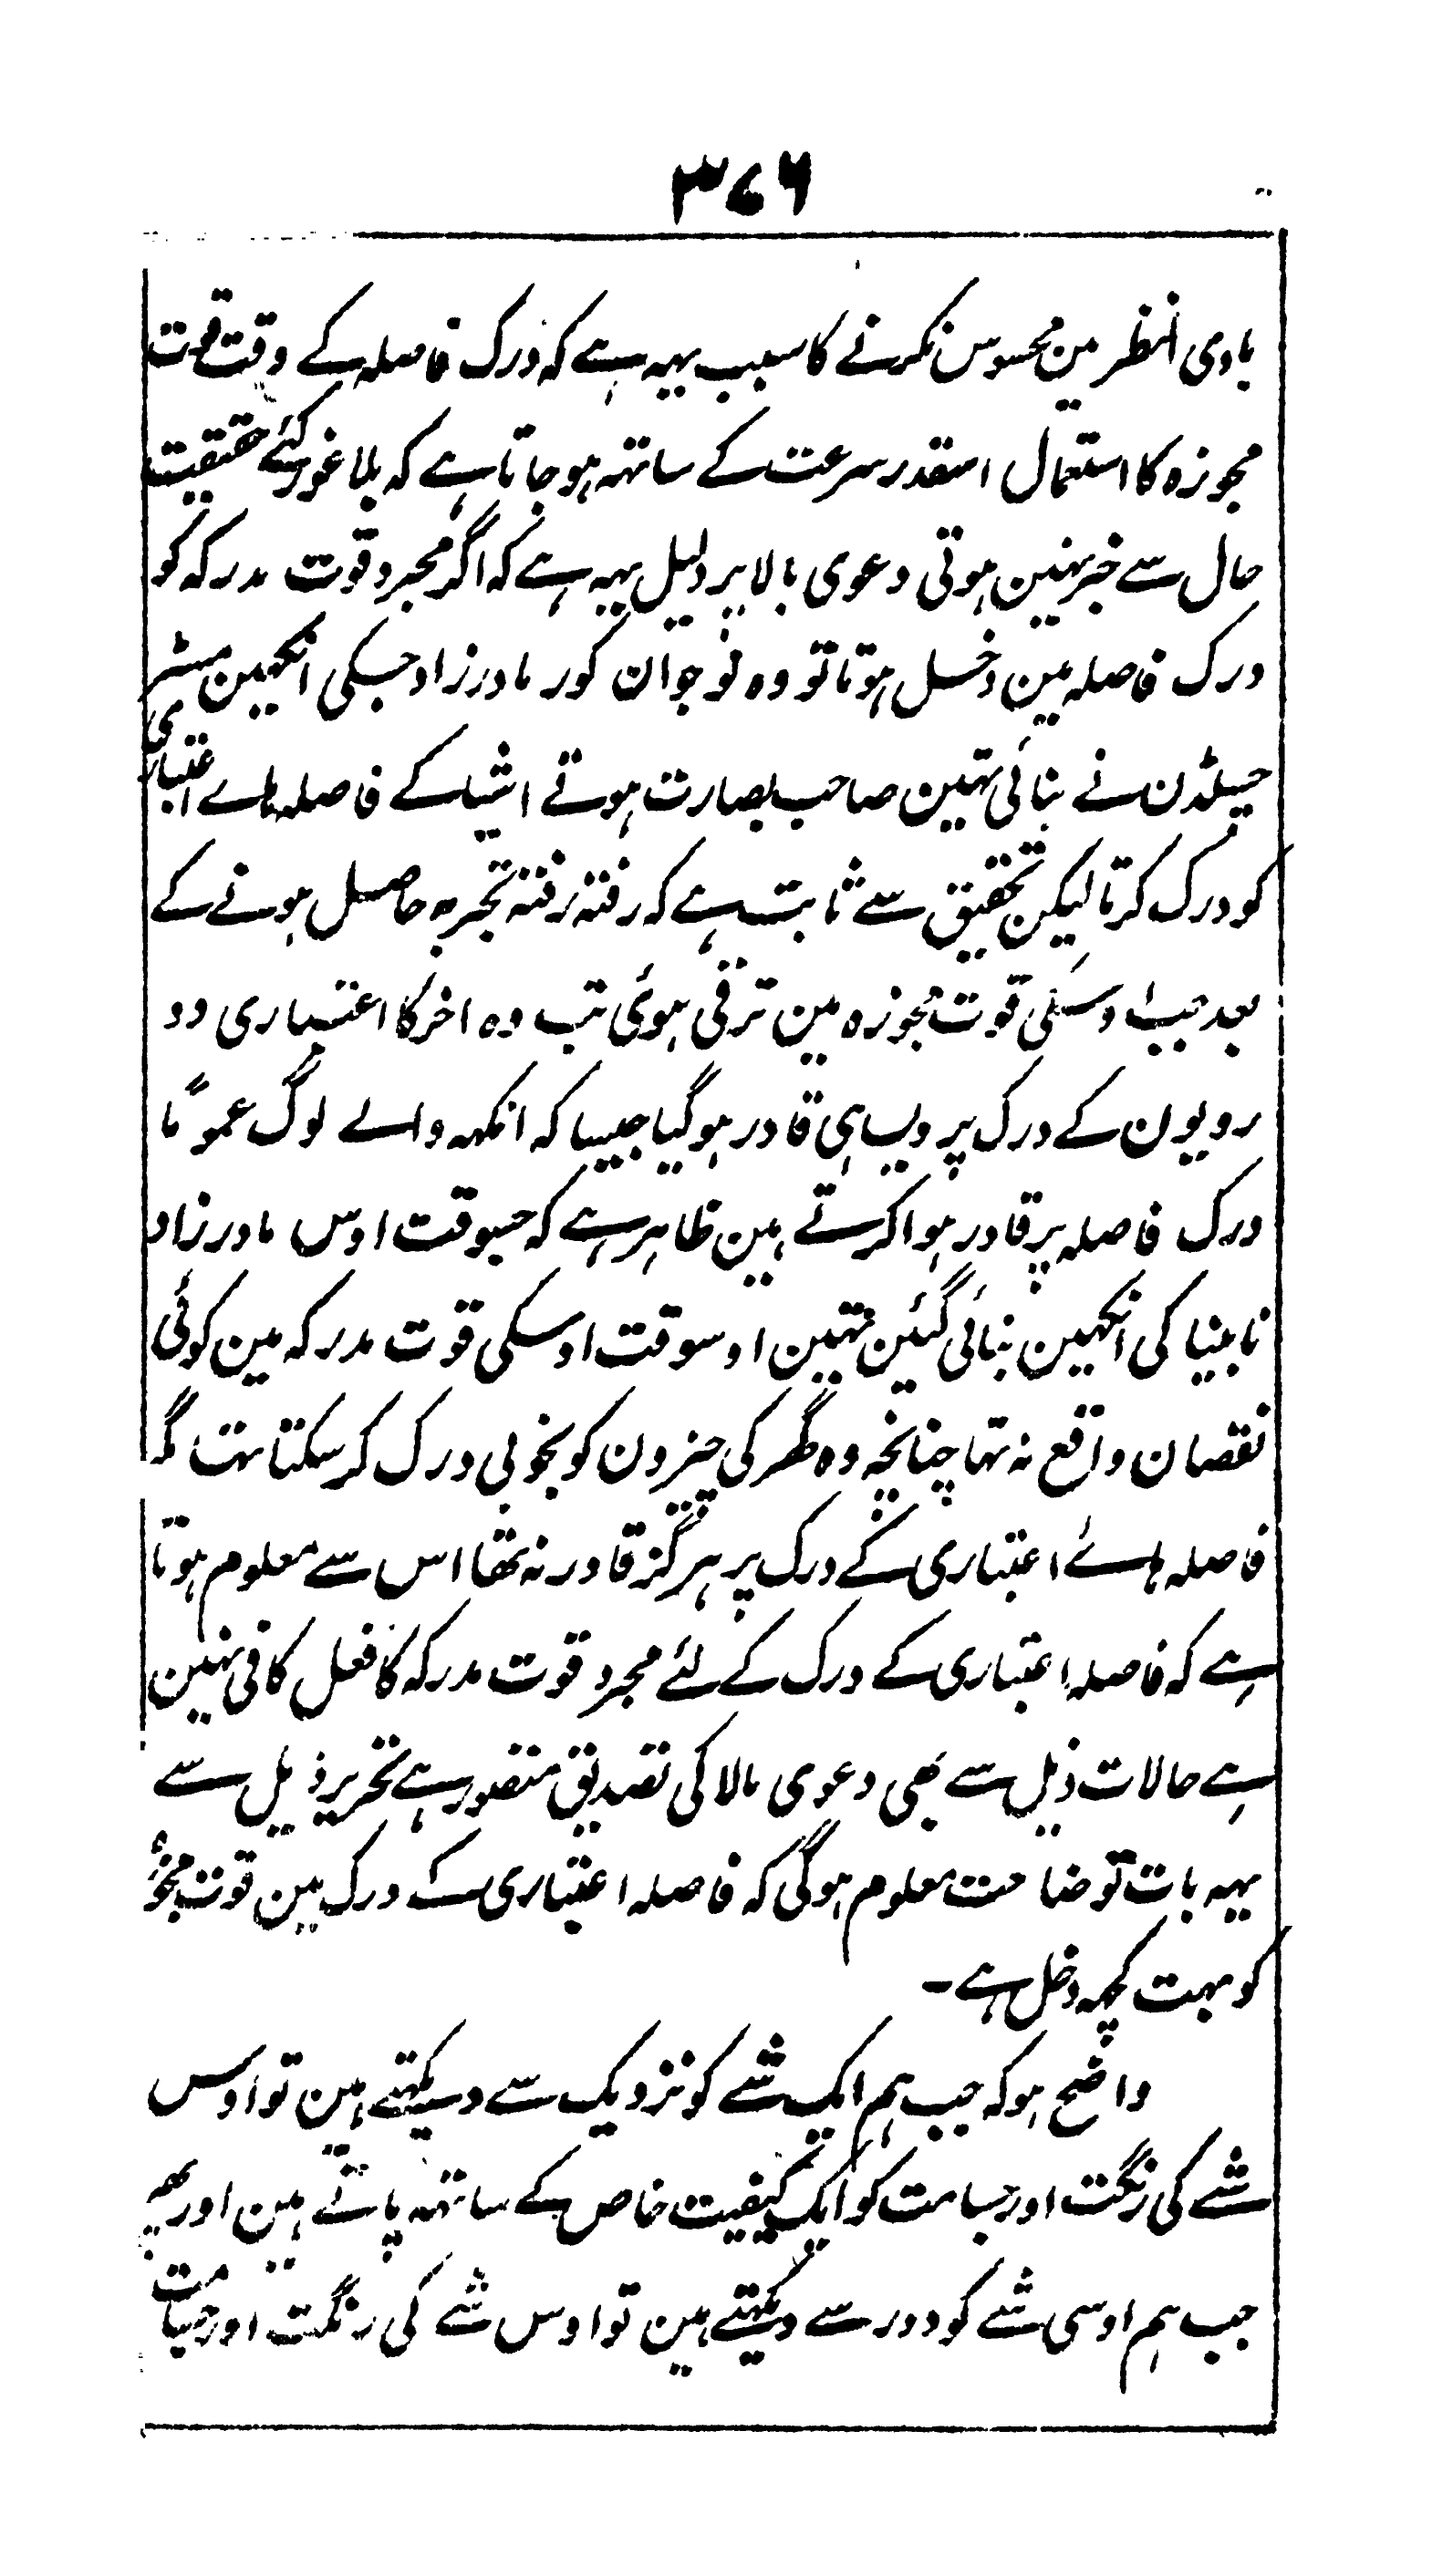 ۳۷۶
بادی النظر مین محسوس نکرنے کا سبب یہہ ہے کہ درک فاصلہ کے وقت قوت
مجوزہ کا استعمال اسقدر سرعت کے ساتہہ ہو جاتا ہے کہ بلا غور کئے حقیقت
حال سے خبر نہین ہوتی دعوی بالا پر دلیل یہہ ہے کہ اگر مجرد قوت مدرکہ کو
درک فاصلہ مین دخل ہوتا تو وہ نوجوان کور مادرزاد جسکی انکہین مسٹر
چیلڈن نے بنائی تہین صاحب بصارت ہوتے اشیا کے فاصلہ ہاے اعتباری
کو درک کرتا لیکن تحقیق سے ثابت ہے کہ رفتہ رفتہ تجربہ حاصل ہونے کے
بعد جب اوسکی قوت مجوزہ مین ترقی ہوئی تب وہ اخر کا اعتباری دو
رویون کے درک پر ویسا ہی قادر ہو گیا جیسا کہ انکہہ والے لوگ عموماً
درک فاصلہ پر قادر ہوا کرتے ہین ظاہر ہے کہ جسوقت اوس مادرزاد
نابینا کی انکہین بنائی گئین تہین اوسوقت اوسکی قوت مدرکہ مین کوئی
نقصان واقع نہ تہا چنانچہ وہ گھر کی چیزون کو بخوبی درک کر سکتا تہا مگر
فاصلہ ہائے اعتباری کے درک پر ہرگز قادر نہ تھا اس سے معلوم ہوتا
ہے کہ فاصلہ اعتباری کے درک کے لئے مجرد قوت مدرکہ کا فعل کافی نہین
ہے حالات ذیل سے بھی دعوی بالا کی تصدیق متصور ہے تحریر ذیل سے
یہہ بات توضاحت معلوم ہوگی کہ فاصلہ اعتباری کے درک مین قوت مجوزہ
کو بہت کچہہ دخل ہے۔
واضح ہو کہ جب ہم ایک شے کو نزدیک سے دیکہتے ہین تو اوس
شے کی رنگت اور جسامت کو ایک کیفیت خاص کے ساتہہ پاتے ہین اور پھر
جب ہم اوسی شے کو دور سے دیکہتے ہین تو اوس شے کی رنگت اور جسامت